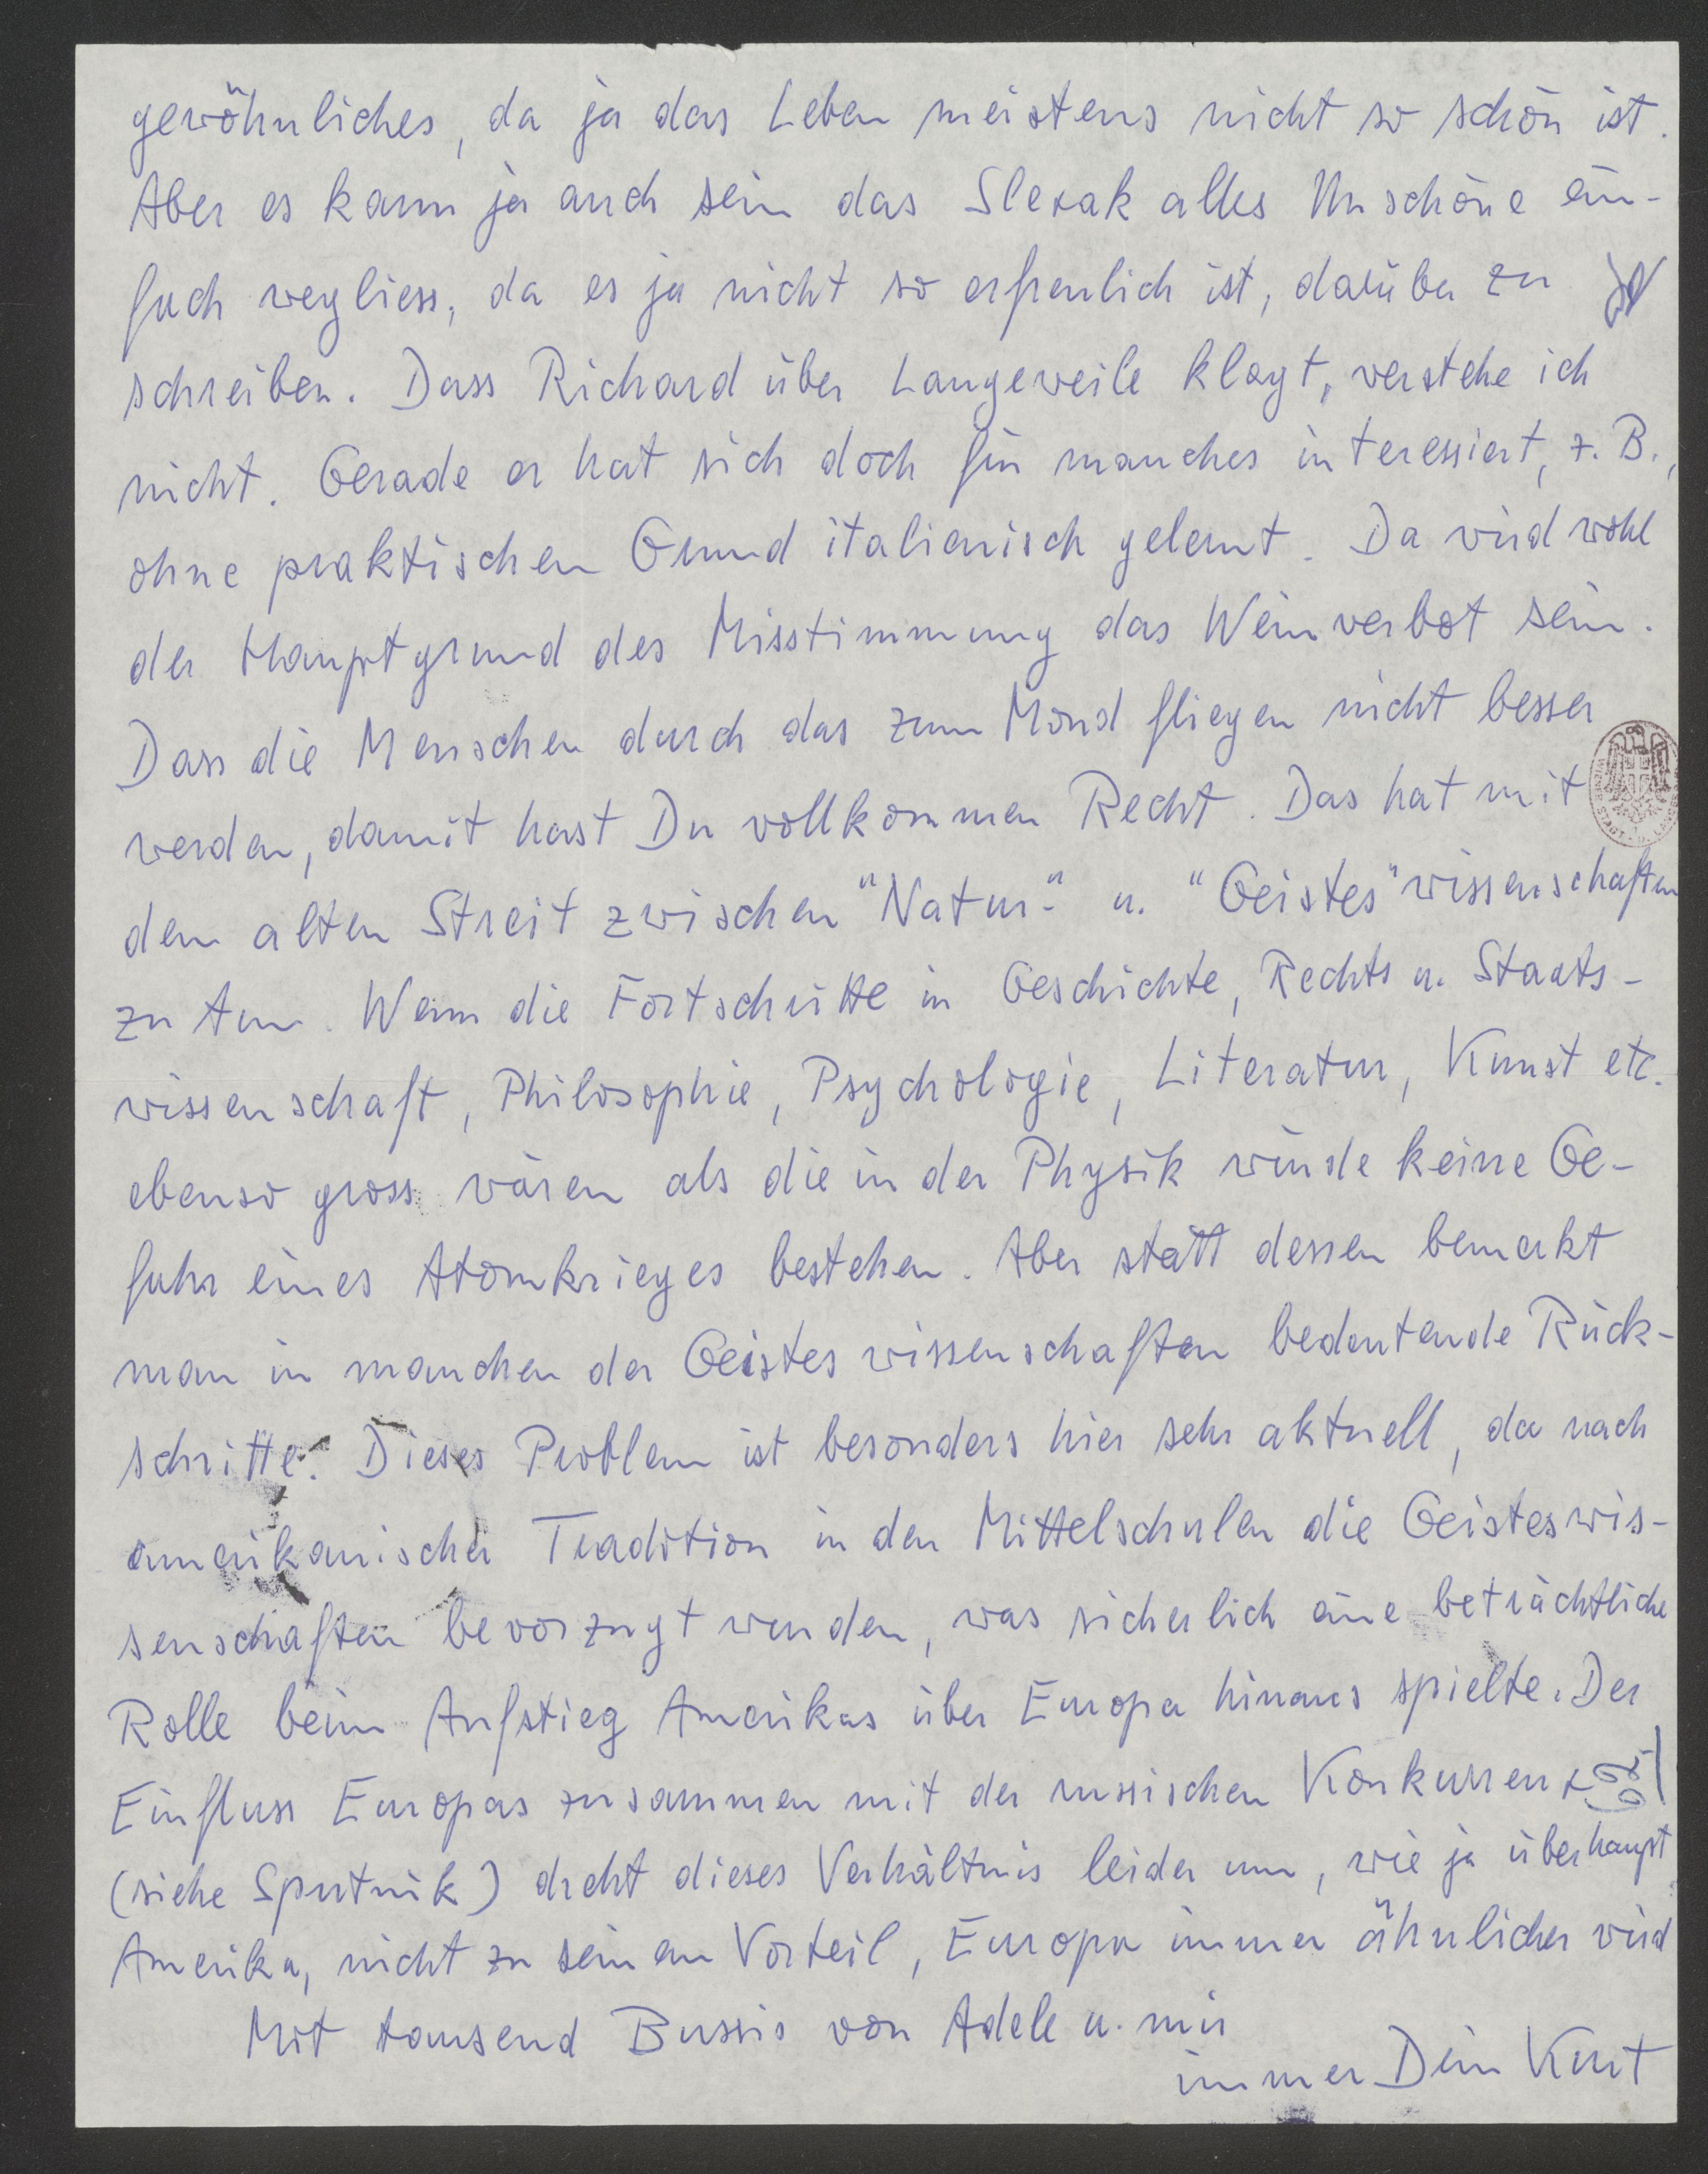 gewöhnliches, da ja das Leben meistens nicht so schön ist.
Aber es kann ja auch sein das Slezak alles Unschöne ein-
fach wegliess, da es ja nicht so erfreulich ist, darüber zu
schreiben. Dass Richard über Langeweile klagt, verstehe ich
nicht. Gerade er hat sich doch für manches interessiert, z. B.,
ohne praktischen Grund italienisch gelernt. Da wird wohl
der Hauptgrund des Misstimmung das Weinverbot sein.
Dass die Menschen durch das zum Mond fliegen nicht besser
werden, damit hast Du vollkommen Recht. Das hat mit
dem alten Streit zwischen "Natur-" u. "Geistes"wissenschaften
zu tun. Wenn die Fortschritte in Geschichte, Rechts u. Staats-
wissenschaft, Philosophie, Psychologie, Literatur, Kunst etc.
ebenso gross wären als die in der Physik würde keine Ge-
fahr eines Atomkrieges bestehen. Aber statt dessen bemerkt
man in manchen der Geisteswissenschaften bedeutende Rück-
schritte. Dieses Problem ist besonders hier sehr aktuell, da nach
amerikanischer Tradition in den Mittelschulen die Geisteswis-
senschaften bevorzugt wurden, was sicherlich eine beträchtliche
Rolle beim Aufstieg Amerikas über Europa hinaus spielte. Der
Einfluss Europas zusammen mit der russischen Konkurrenz
(siehe Sputnik) dreht dieses Verhältnis leider um, wie ja überhaupt
Amerika, nicht zu seinem Vorteil, Europa immer ähnlicher wird
Mit tausend Bussis von Adele u. mir
immer Dein Kurt